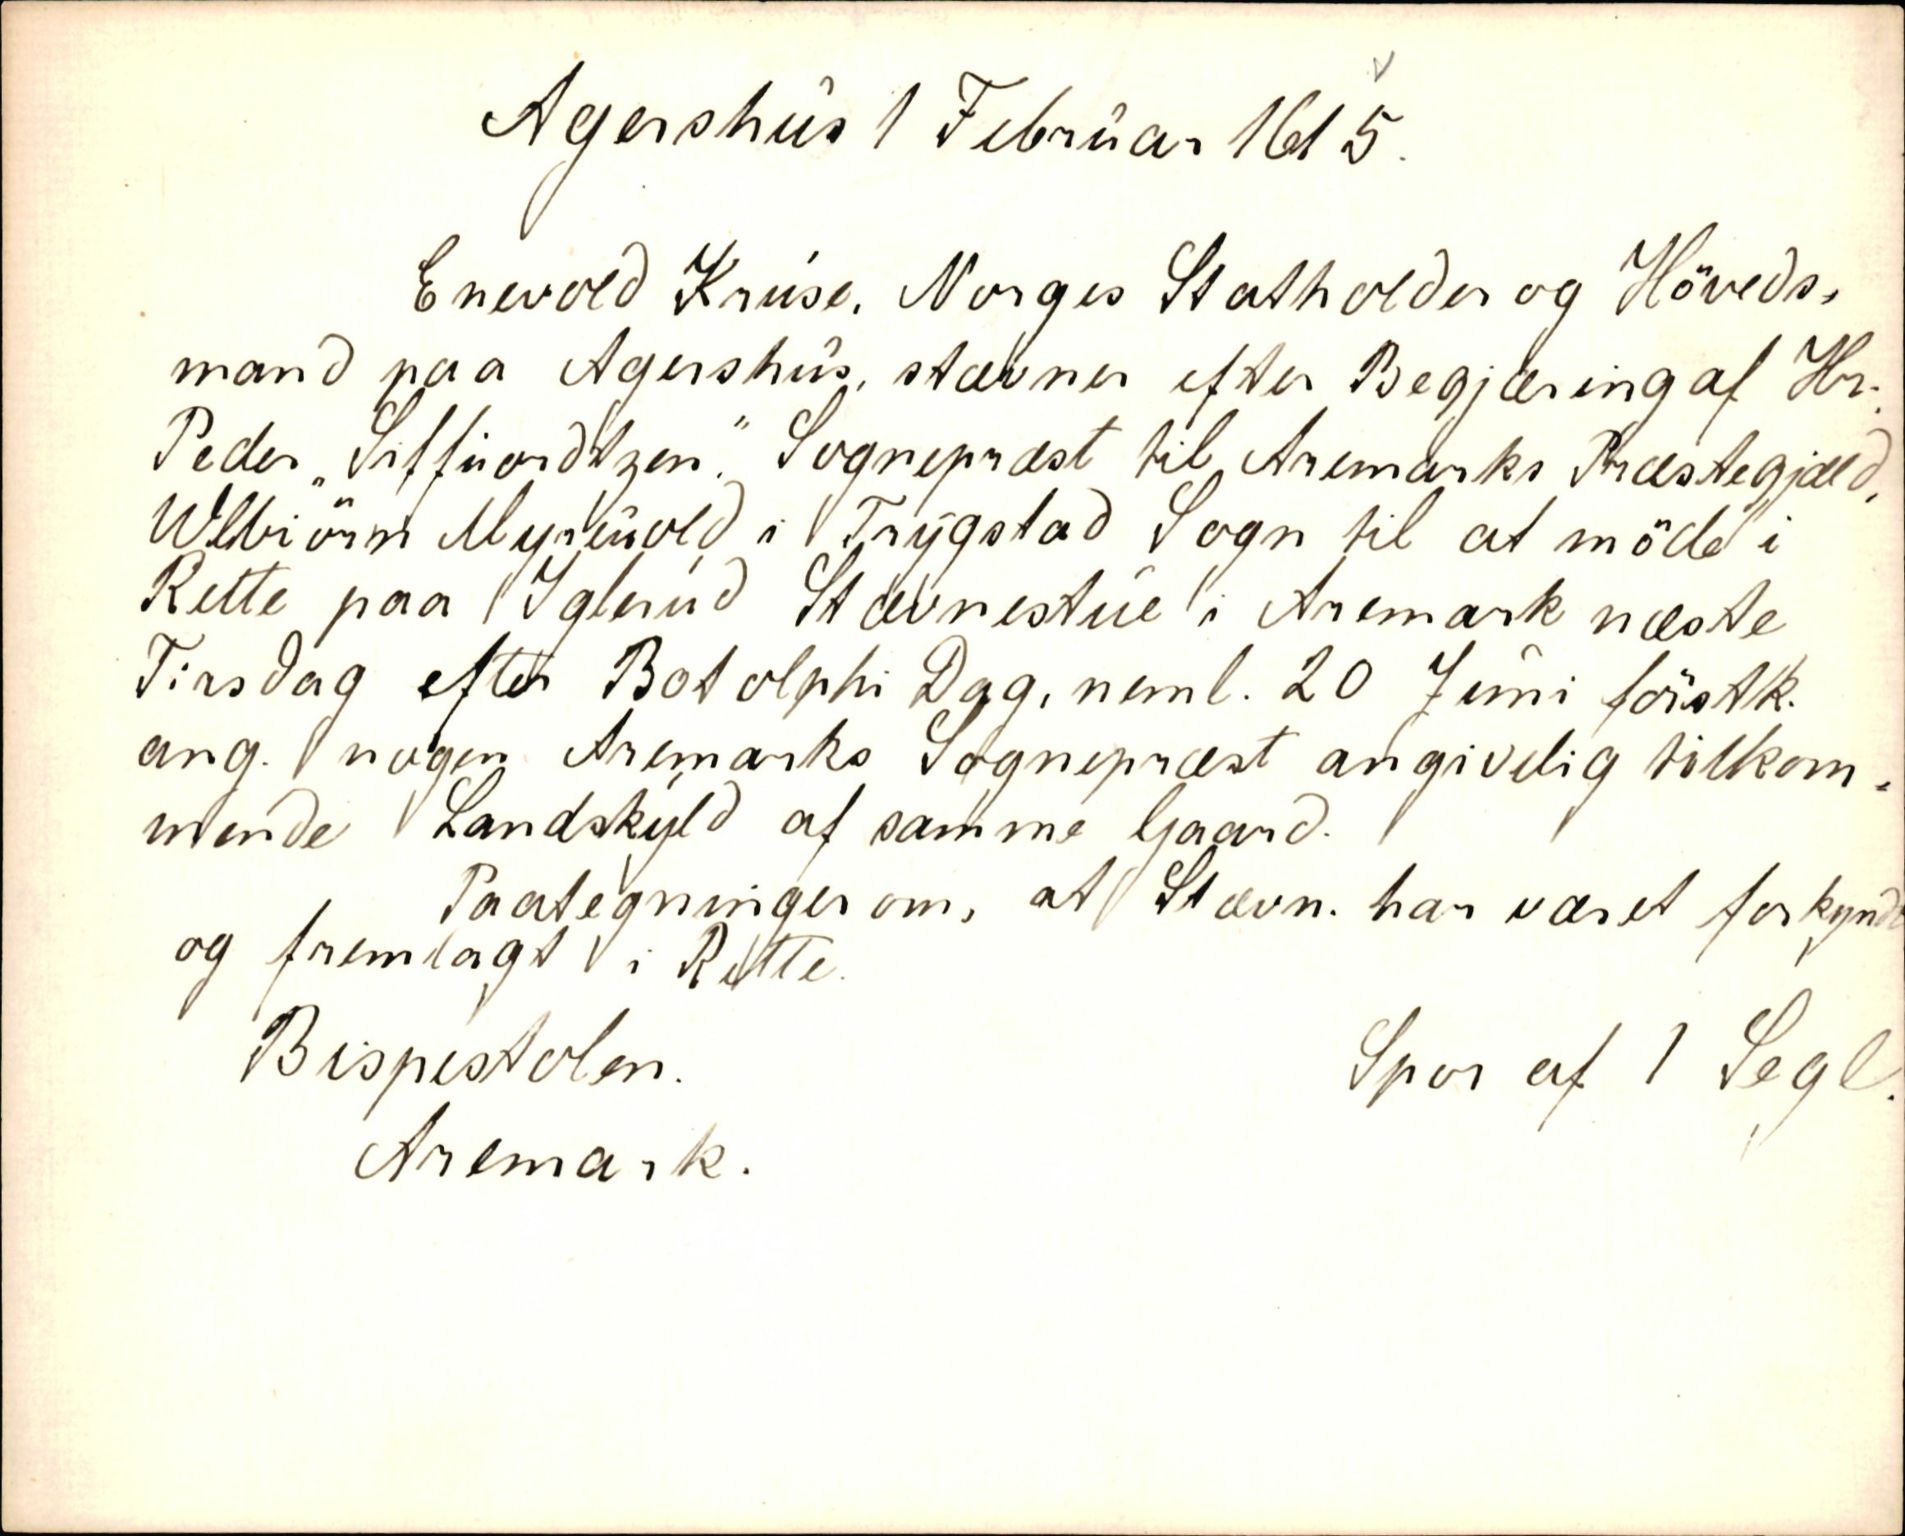 Agershús 1 Februar 1615.
Enevold Kruse, Norges Statholder og Höveds-
mand paa Agershus, stævner efter Begjæring af Hr.
Peder „Siffuordtzen“ Sognepræst til Aremarks Præstegjæld,
Wlbiörn Myreuold i Trygstad Sogn til at möde i
Rette paa Iglerud Stævnestue i Aremark næste
Tirsdag efter Botolphi Dag, neml. 20 Juni förstk.
ang. nogen Aremarks Sognepræst angivelig tilkom-
mende Landskyld af samme Gaard.
Paategninger om, at Stævn. har været forkyndt
og fremlagt i Rette.
Bispestolen. Spor af 1 Segl.
Aremark.